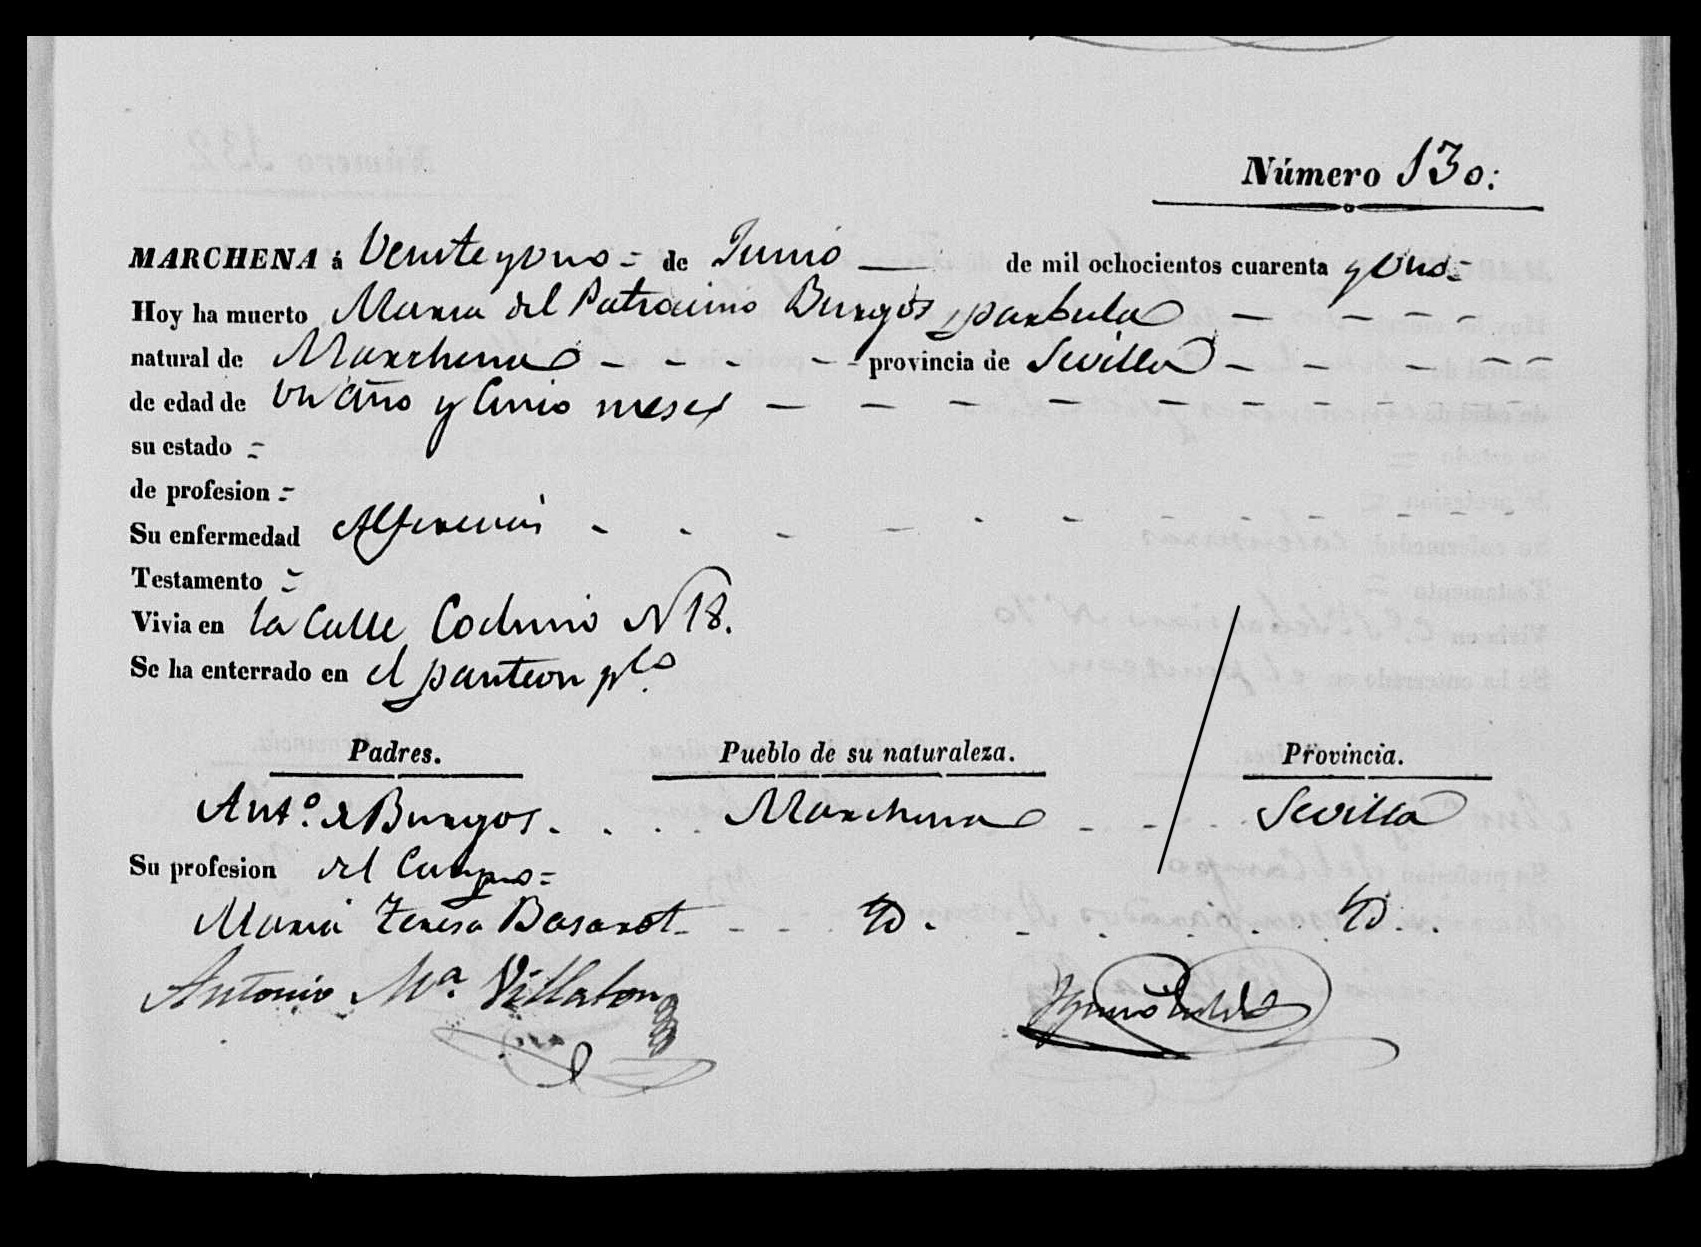 Número 130:
MARCHENA á Veinte y uno = de Junio — de mil ochocientos cuarenta y uno =
Hoy ha muerto Maria del Patrocinio Burgos, parbula — — — — —
natural de Marchena - - - - - provincia de Sevilla - - - - -
de edad de Un año y Cinco meses — — — — — — — — —
su estado =
de profesion =
Su enfermedad Alferecia - - - - - - - - - - - -
Testamento =
Vivia en la Calle Coduno N 18.
Se ha enterrado en el panteon pco
Padres. Pueblo de su naturaleza. Provincia.
Anto. de Burgos. . . . Marchena - - - . Sevilla
Su profesion del Campo =
Maria Teresa Basarot - - - - YD. - . . . . YD. . .
Antonio Ma. Villalon